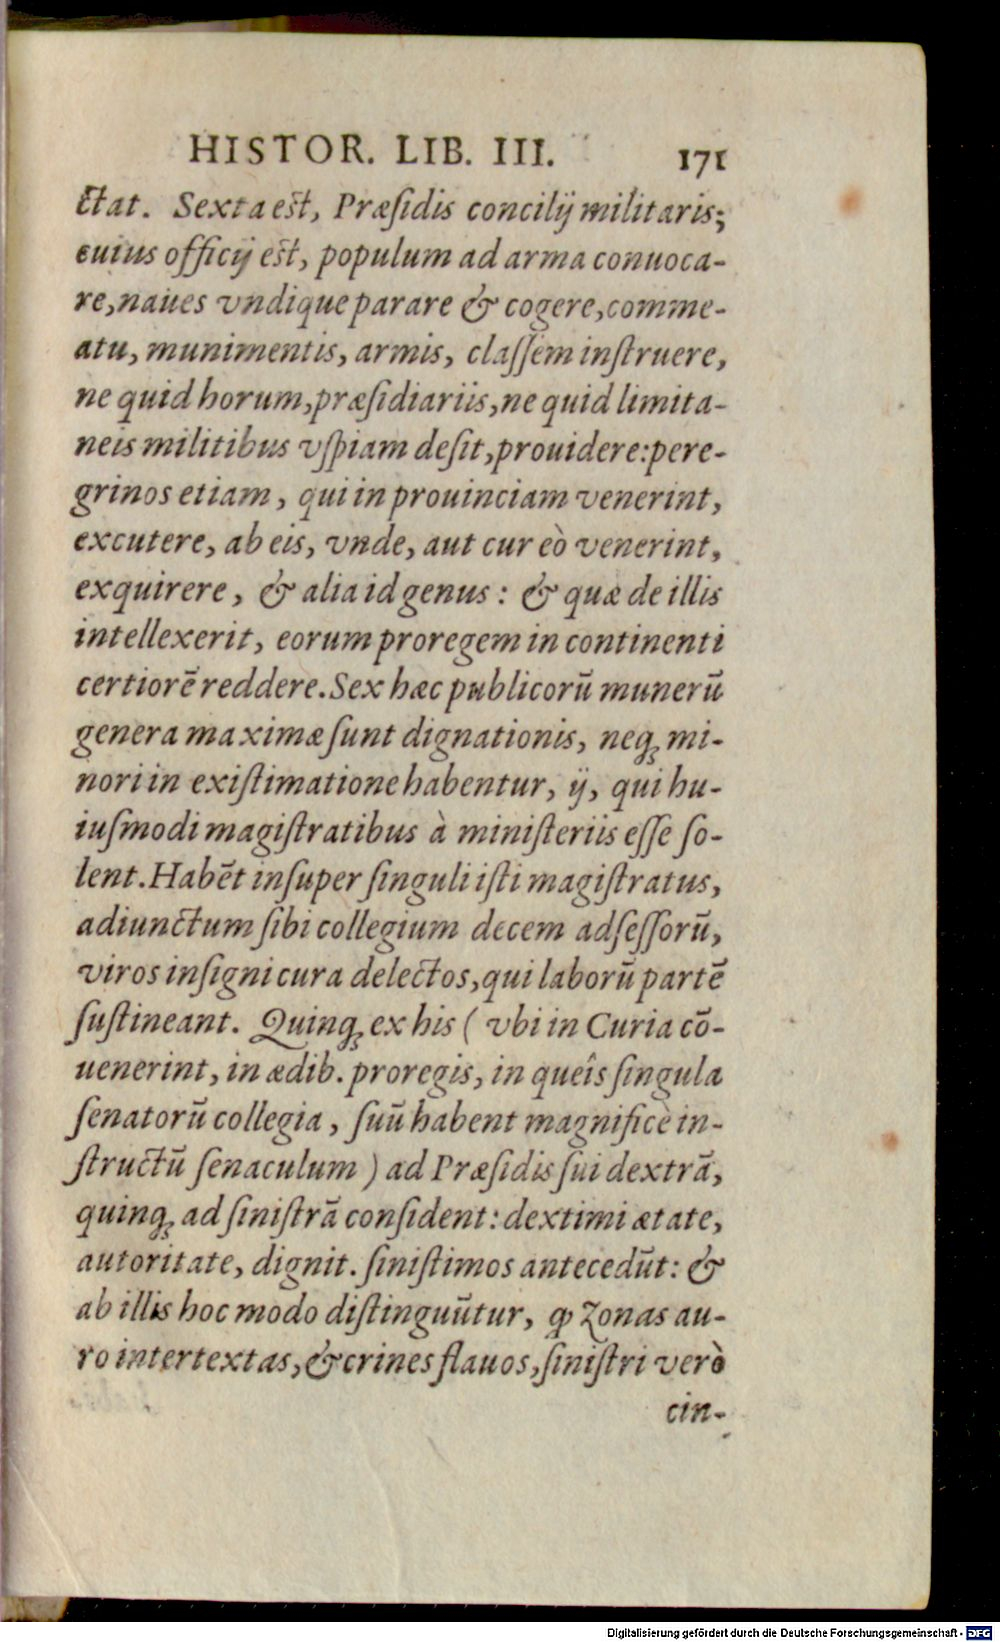 HISTOR. LIB. III. 171
ctat. Sexta est, Præſidis concilij militaris;
cuius officij est, populum ad arma conuoca-
re, naues vndique parare & cogere, comme-
atu, munimentis, armis, claſſem inſtruere,
ne quid horum, præſidiariis, ne quid limita-
neis militibus vſpiam deſit, prouidere: pere-
grinos etiam, qui in prouinciam venerint,
excutere, ab eis, vnde, aut cur eò venerint,
exquirere, & alia id genus: & quæ de illis
intellexerit, eorum proregem in continenti
certiorē reddere. Sex hæc publicorū munerū
genera maximæ ſunt dignationis, neq; mi-
nori in exiſtimatione habentur, ij, qui hu-
iuſmodi magiſtratibus à miniſteriis eſſe ſo-
lent. Habēt inſuper ſinguli iſti magiſtratus,
adiunctum ſibi collegium decem adſeſſorū,
viros inſigni cura delectos, qui laborū partē
ſuſtineant. Quinq; ex his ( vbi in Curia cō-
uenerint, in ædib. proregis, in queîs ſingula
ſenatorū collegia, ſuū habent magnificè in-
ſtructū ſenaculum ) ad Præſidis ſui dextrā,
quinq; ad ſiniſtrā conſident: dextimi ætate,
autoritate, dignit. ſiniſtimos antecedūt: &
ab illis hoc modo diſtinguūtur, ꝙ Zonas au-
ro intertextas, & crines flauos, ſiniſtri verò
cin-
Digitalisierung gefördert durch die Deutsche Forschungsgemeinschaft - DFG